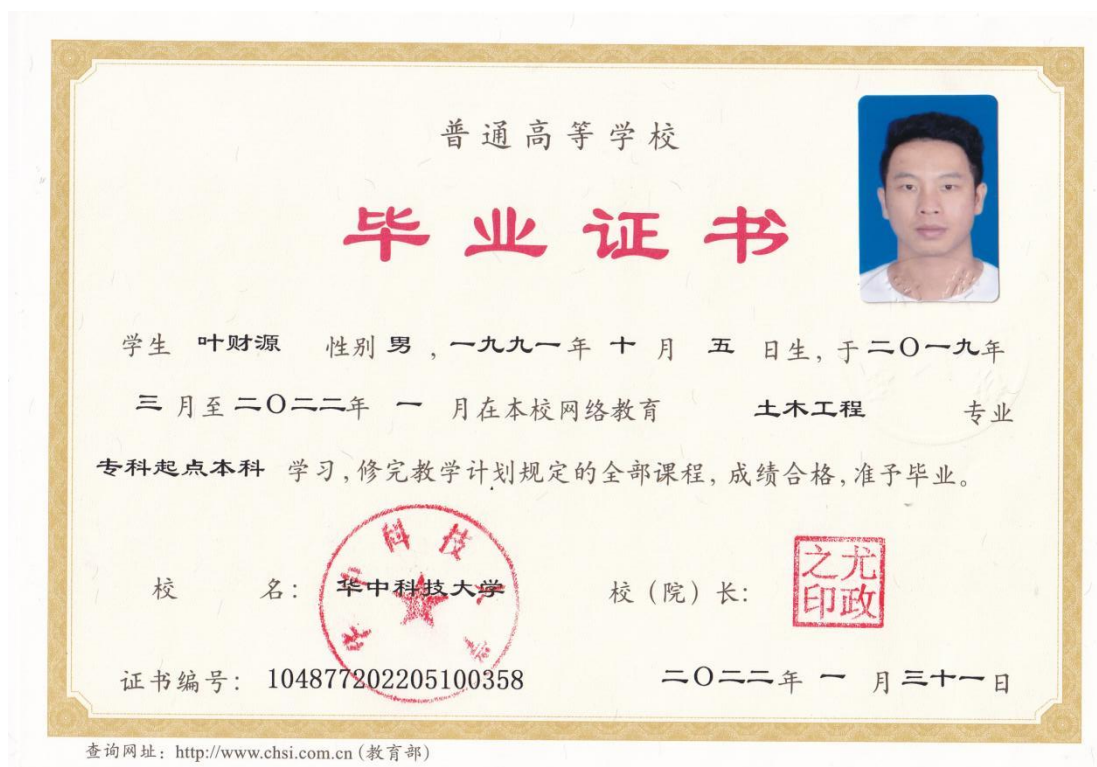 普通高等学校
毕业证书
学生 叶财源 性别 男 , 一九九一年 十 月 五 日生, 于二〇一九年
三 月至二〇二二年 一 月在本校网络教育 土木工程 专业
专科起点本科 学习, 修完教学计划规定的全部课程, 成绩合格, 准予毕业。
华中科技大学
校 名: 华中科技大学 校(院)长: 尤政之印
证书编号: 104877202205100358 二〇二二年 一 月三十一日
查询网址: http://www.chsi.com.cn (教育部)